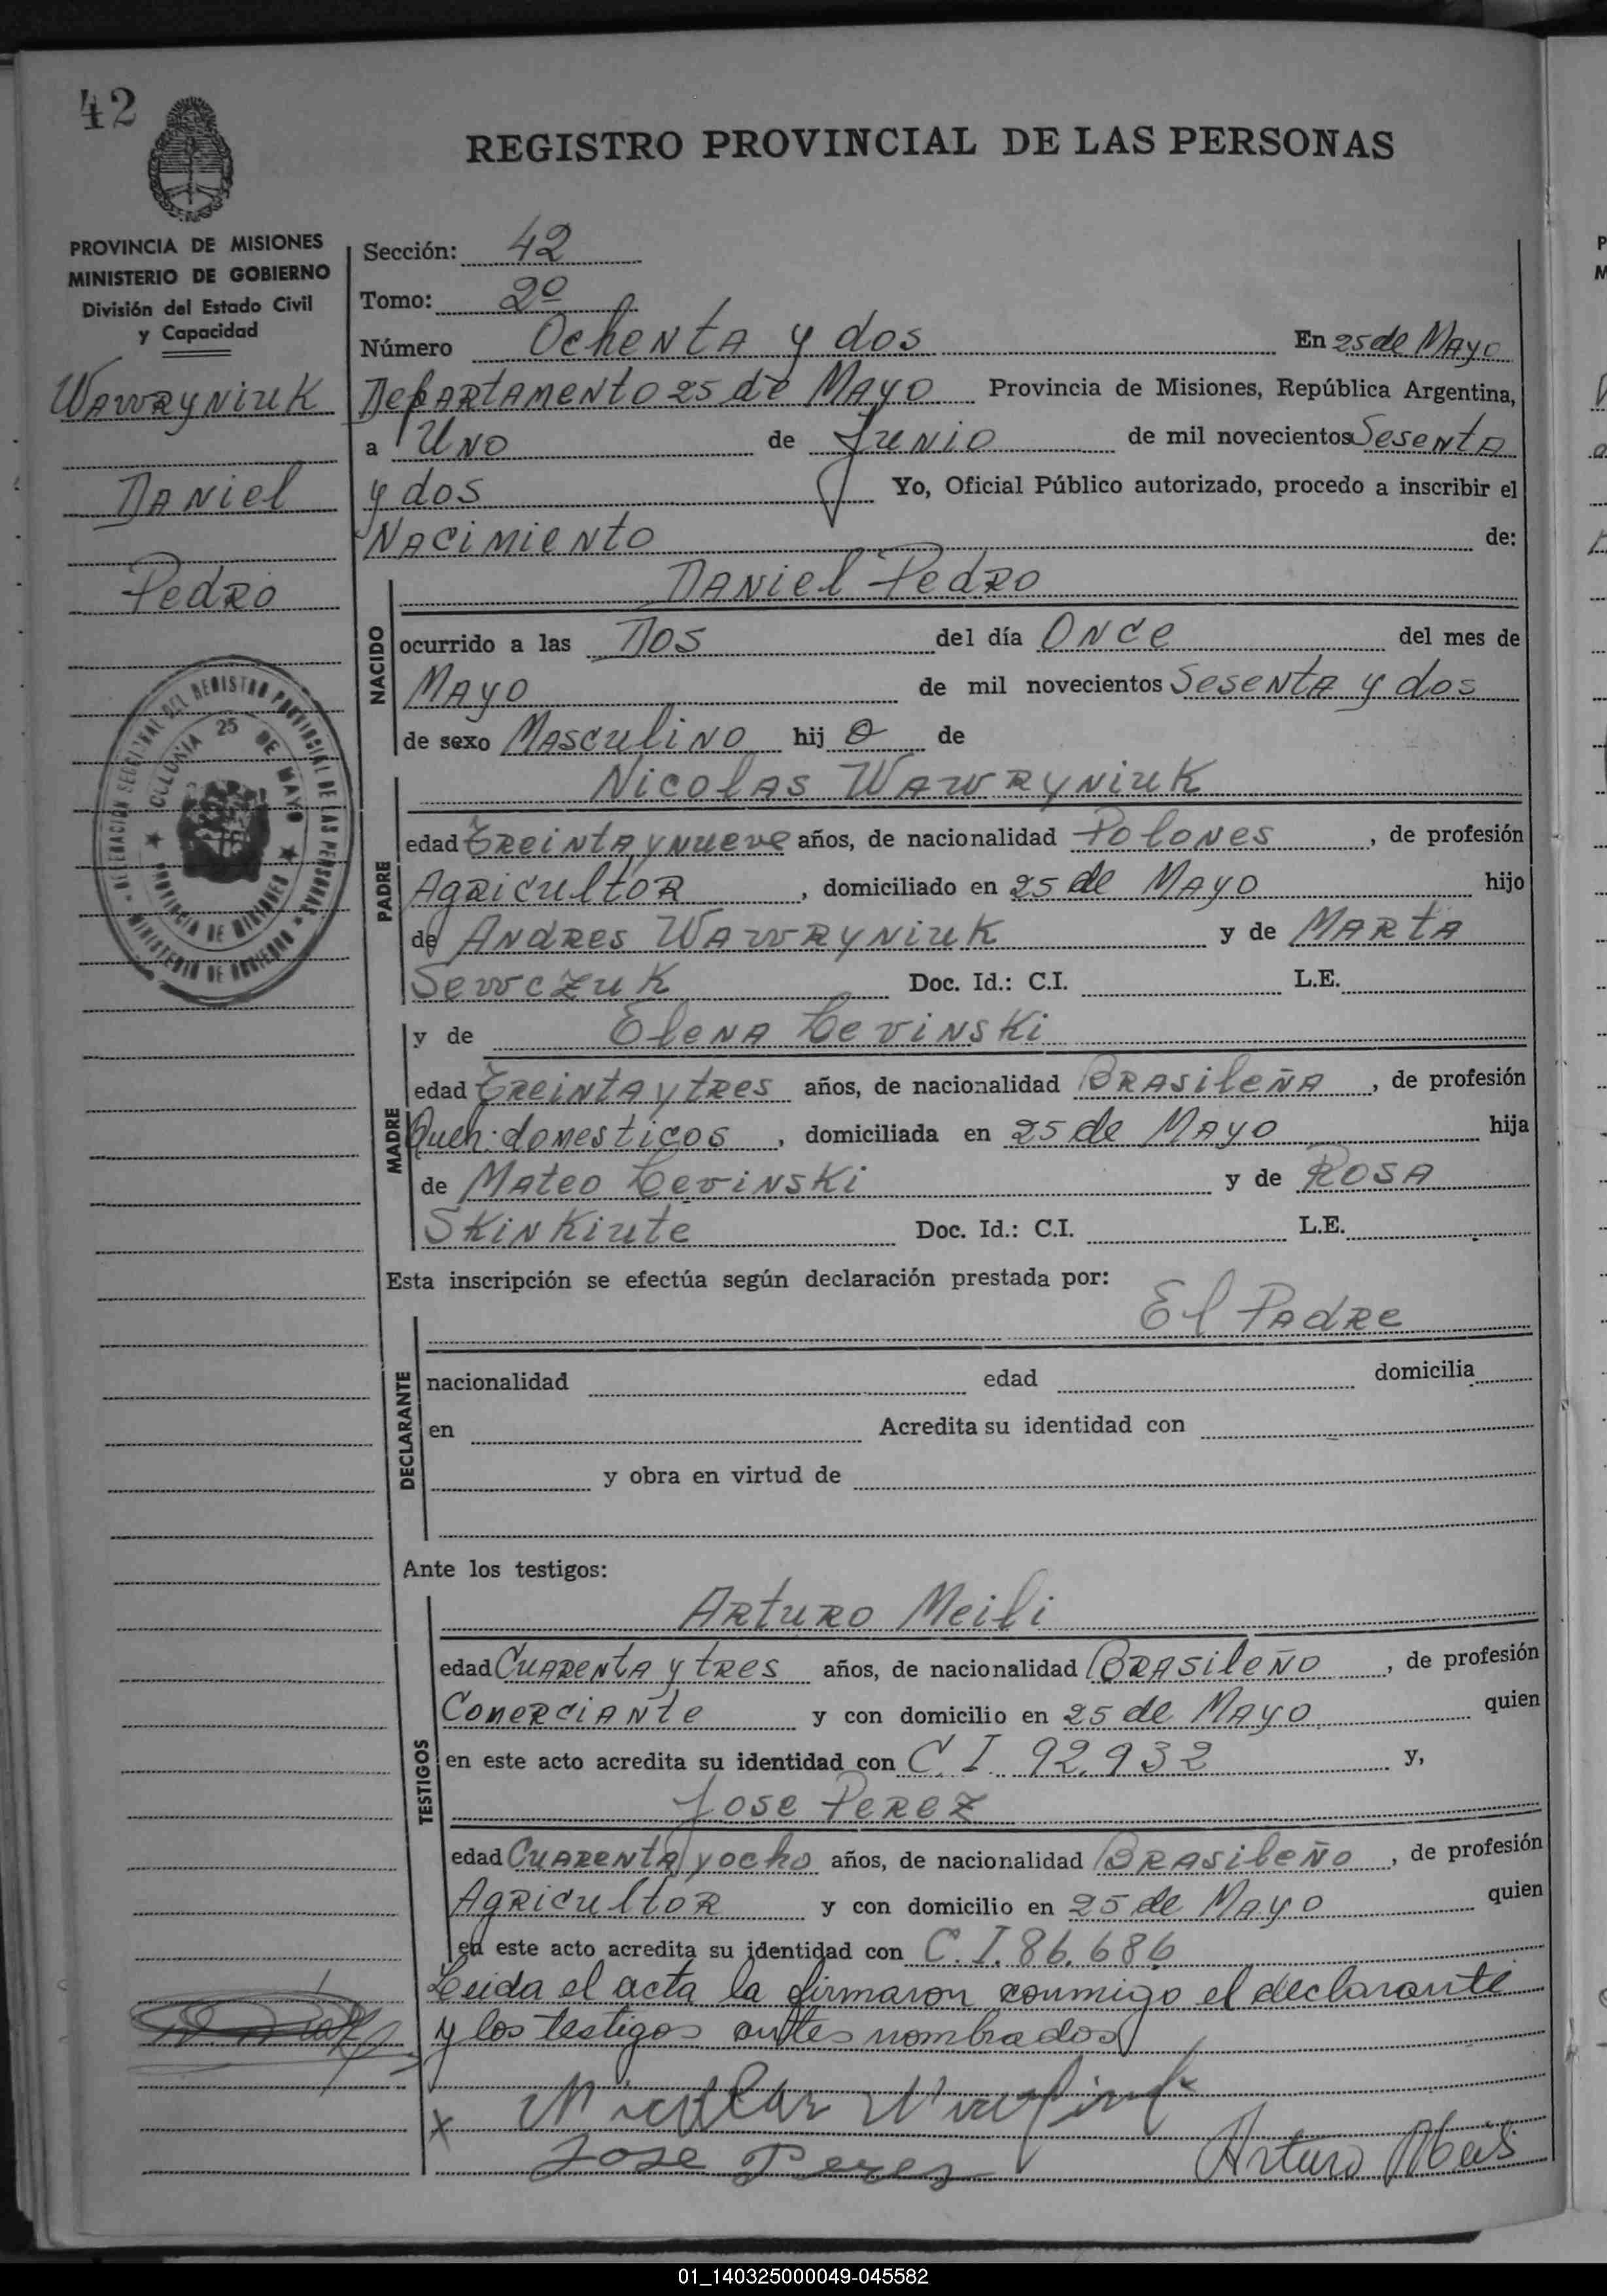 42
REGISTRO PROVINCIAL DE LAS PERSONAS
PROVINCIA DE MISIONES
MINISTERIO DE GOBIERNO
División del Estado Civil
y Capacidad
Wawryniuk
Daniel
Pedro
DELEGACIÓN SECCIONAL DEL REGISTRO PROVINCIAL DE LAS PERSONAS
MINISTERIO DE GOBIERNO
COLONIA 25 DE MAYO
PROVINCIA DE MISIONES
Sección: 42
Tomo: 2º
Número Ochenta y dos En 25 de Mayo
Departamento 25 de Mayo Provincia de Misiones, República Argentina,
a Uno de Junio de mil novecientos Sesenta
y dos Yo, Oficial Público autorizado, procedo a inscribir el
Nacimiento de:
NACIDO
Daniel Pedro
ocurrido a las Dos del día Once del mes de
Mayo de mil novecientos Sesenta y dos
de sexo Masculino hij o de
PADRE
Nicolas Wawryniuk
edad Treinta y nueve años, de nacionalidad Polones, de profesión
Agricultor, domiciliado en 25 de Mayo hijo
de Andres Wawryniuk y de Marta
Sewczuk Doc. Id.: C.I. L.E.
MADRE
y de Elena Levinski
edad Treinta y tres años, de nacionalidad Brasileña, de profesión
Queh. domesticos, domiciliada en 25 de Mayo hija
de Mateo Levinski y de Rosa
Skinkiute Doc. Id.: C.I. L.E.
Esta inscripción se efectúa según declaración prestada por:
El Padre
DECLARANTE
nacionalidad edad domicilia
en Acredita su identidad con
y obra en virtud de
Ante los testigos:
TESTIGOS
Arturo Meili
edad Cuarenta y tres años, de nacionalidad Brasileño, de profesión
Comerciante y con domicilio en 25 de Mayo quien
en este acto acredita su identidad con C. I. 92.932 y,
Jose Perez
edad Cuarenta y ocho años, de nacionalidad Brasileño, de profesión
Agricultor y con domicilio en 25 de Mayo quien
en este acto acredita su identidad con C.I. 86.686
Leida el acta la firmaron conmigo el declarante
y los testigos antes nombrados
x
Jose Perez Arturo Meili
01_140325000049-045582